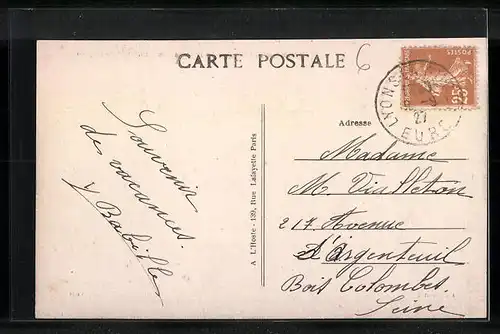 CARTE POSTALE
6
POSTES
25
LYONS
27
EURE
Adresse
Souvenir
de vacances.
Y Babille
A L'Hoste - 139, Rue Lafayette Paris
Madame
M. Vialleton
217 Avenue
d'Argenteuil
Bois Colombes
Seine